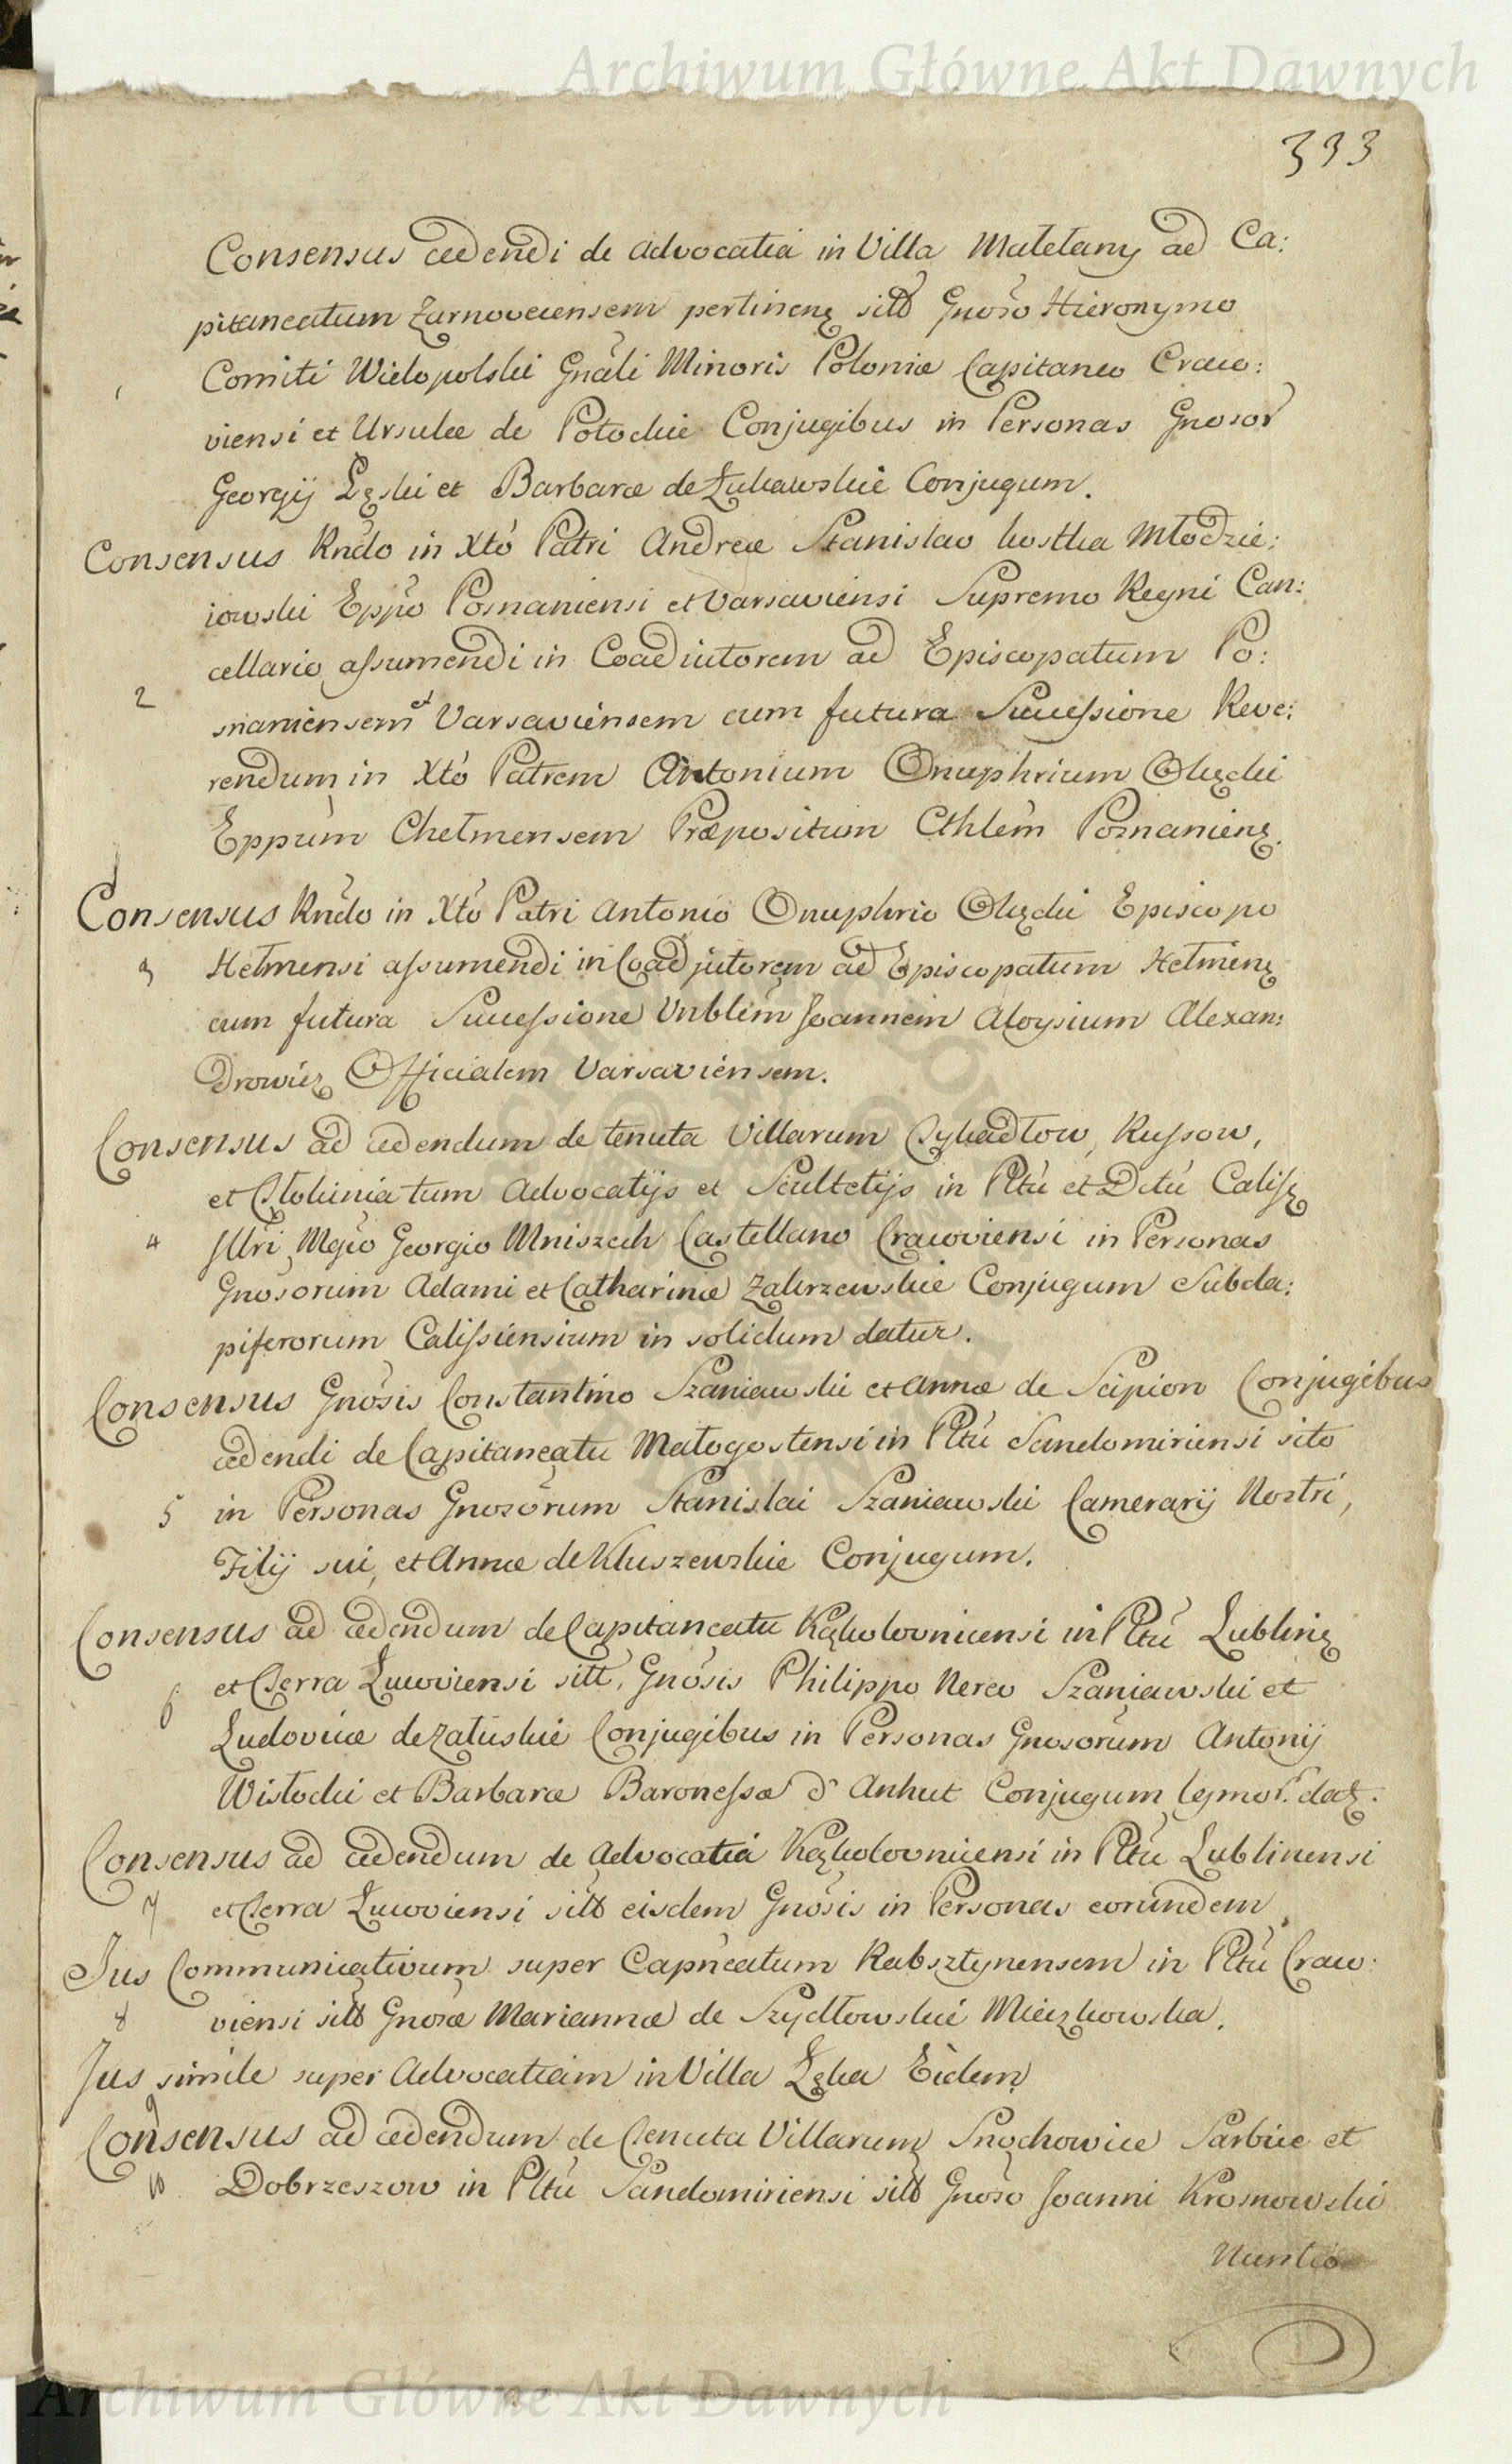 Archiwum Główne Akt Dawnych
333
Consensus cedendi de Advocatia in Villa Maletany ad Ca:
pitaneatum Zarnovecensem pertinenę sitō Gnoso Hieronymo
1 Comiti Wielopolski Gnali Minoris Poloniæ Capitaneo Craco:
viensi et Ursulæ de Potockie Conjugibus in Personas Gnosor
Georgij Łęski et Barbaræ de Łukawskie Conjugum.
Consensus Rndo in Xto Patri Andreæ Stanislao kostka Młodzie:
iowski Eppo Posnaniensi et Varsaviensi Supremo Regni Can:
cellario assumendi in Coadiutorem ad Episcopatum Po:
2 snaniensem et Varsaviensem cum futura Successione Reve:
rendum in Xto Patrem Antonium Onuphrium Okęcki
Eppum Chełmensem Præpositum Cthlem Posnanienę.
Consensus Rndo in Xto Patri Antonio Onuphrio Okęcki Episcopo
3 Hełmensi assumendi in Coadjutorem ad Episcopatum Hełmenę
cum futura Successione Vnblem Joannem Aloysium Alexan:
drowicz Officialem Varsaviensem.
Consensus ad cedendum de tenuta Villarum Tykadłow, Russow,
et Tłokinia tum Advocatijs et Scultetijs in Pltu et Dctu Calisę
4 Jllri Mgco Georgio Mniszech Castellano Cracoviensi in Personas
Gnosorum Adami et Catharinæ Zakrzewskie Conjugum Subda:
piferorum Calissiensium in solidum datur.
Consensus Gnosis Constantino Szaniawski et Annæ de Scipion Conjugibus
cedendi de Capitaneatu Małogostensi in Pltu Sandomiriensi sito
5 in Personas Gnosorum Stanislai Szaniawski Camerarij Nostri,
Filij sui, et Annæ de Kluszewskie Conjugum.
Consensus ad cedendum de Capitaneatu Kąkolovnicensi in Pltu Lublinę
6 et Terra Lucoviensi sitt. Gnosis Philippo Nereo Szaniawski et
Ludovicæ de Załuskie Conjugibus in Personas Gnosorum Antonij
Wisłocki et Barbaræ Baronessæ d'Anhut Conjugum datę.
Consensus ad cedendum de Advocatia Kąkolovnicensi in Pltu Lublinensi
7 et Terra Lucoviensi sitō eisdem Gnosis in Personas eorundem
Jus Communicativum super Capneatum Rabsztynensem in Pltu Craco:
8 viensi sitō Gnosæ Mariannæ de Szydłowskie Mieczkowska.
Jus simile super Advocatiam in Villa Łęka Eidem
9
Consensus ad cedendum de Tenuta Villarum Snochowice Sarbice et
10 Dobrzeszow in Pltu Sandomiriensi sitō Gnoso Joanni Krosnowski
Nuntio
Archiwum Główne Akt Dawnych